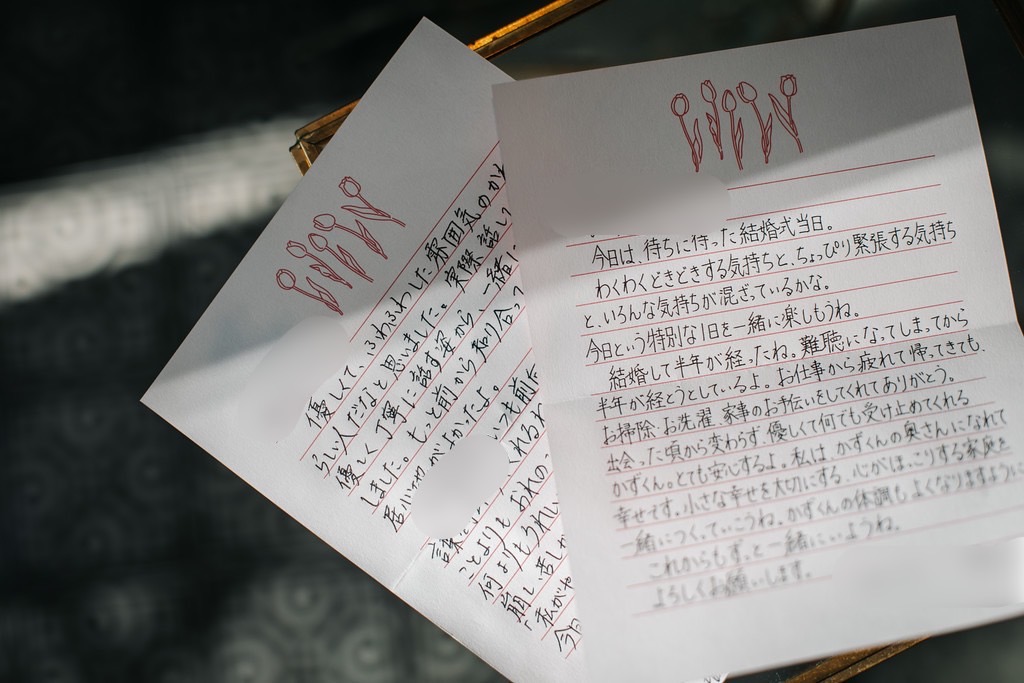 優しくて、ふわふわした雰囲気のかわ
らしい人だなと思いました。実際話して
優しく丁寧に話す姿から、一緒に
しました。もっと前から知り合って
居心地がよかったよ。
いつも前
くれる
ことよりもおれの
何よりもうれし
崩し苦し
「私がや
今
今日は、待ちに待った結婚式当日。
わくわくどきどきする気持ちと、ちょっぴり緊張する気持ち
と、いろんな気持ちが混ざっているかな。
今日という特別な1日を一緒に楽しもうね。
結婚して半年が経ったね。難聴になってしまってから
半年が経とうとしているよ。お仕事から疲れて帰ってきても、
お掃除、お洗濯、家事のお手伝いをしてくれてありがとう。
出会った頃から変わらず、優しくて何でも受け止めてくれる
かずくん。とても安心するよ。私は、かずくんの奥さんになれて
幸せです。小さな幸せを大切にする、心がほっこりする家庭を
一緒につくっていこうね。かずくんの体調もよくなりますように
これからもずっと一緒にいようね。
よろしくお願いします。